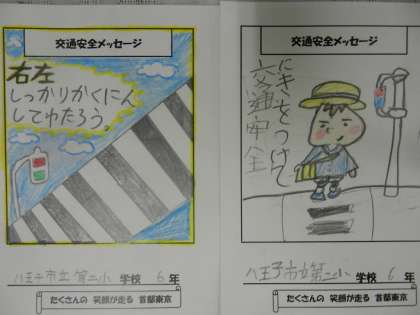 交通安全メッセージ
右左
しっかりかくにん
してわたろう。
八王子市立第二小 学校 6年
たくさんの 笑顔が走る 首都東京
交通安全メッセージ
にきをつけて
交通安全
八王子市立第二小 学校 6年
たくさんの 笑顔が走る 首都東京